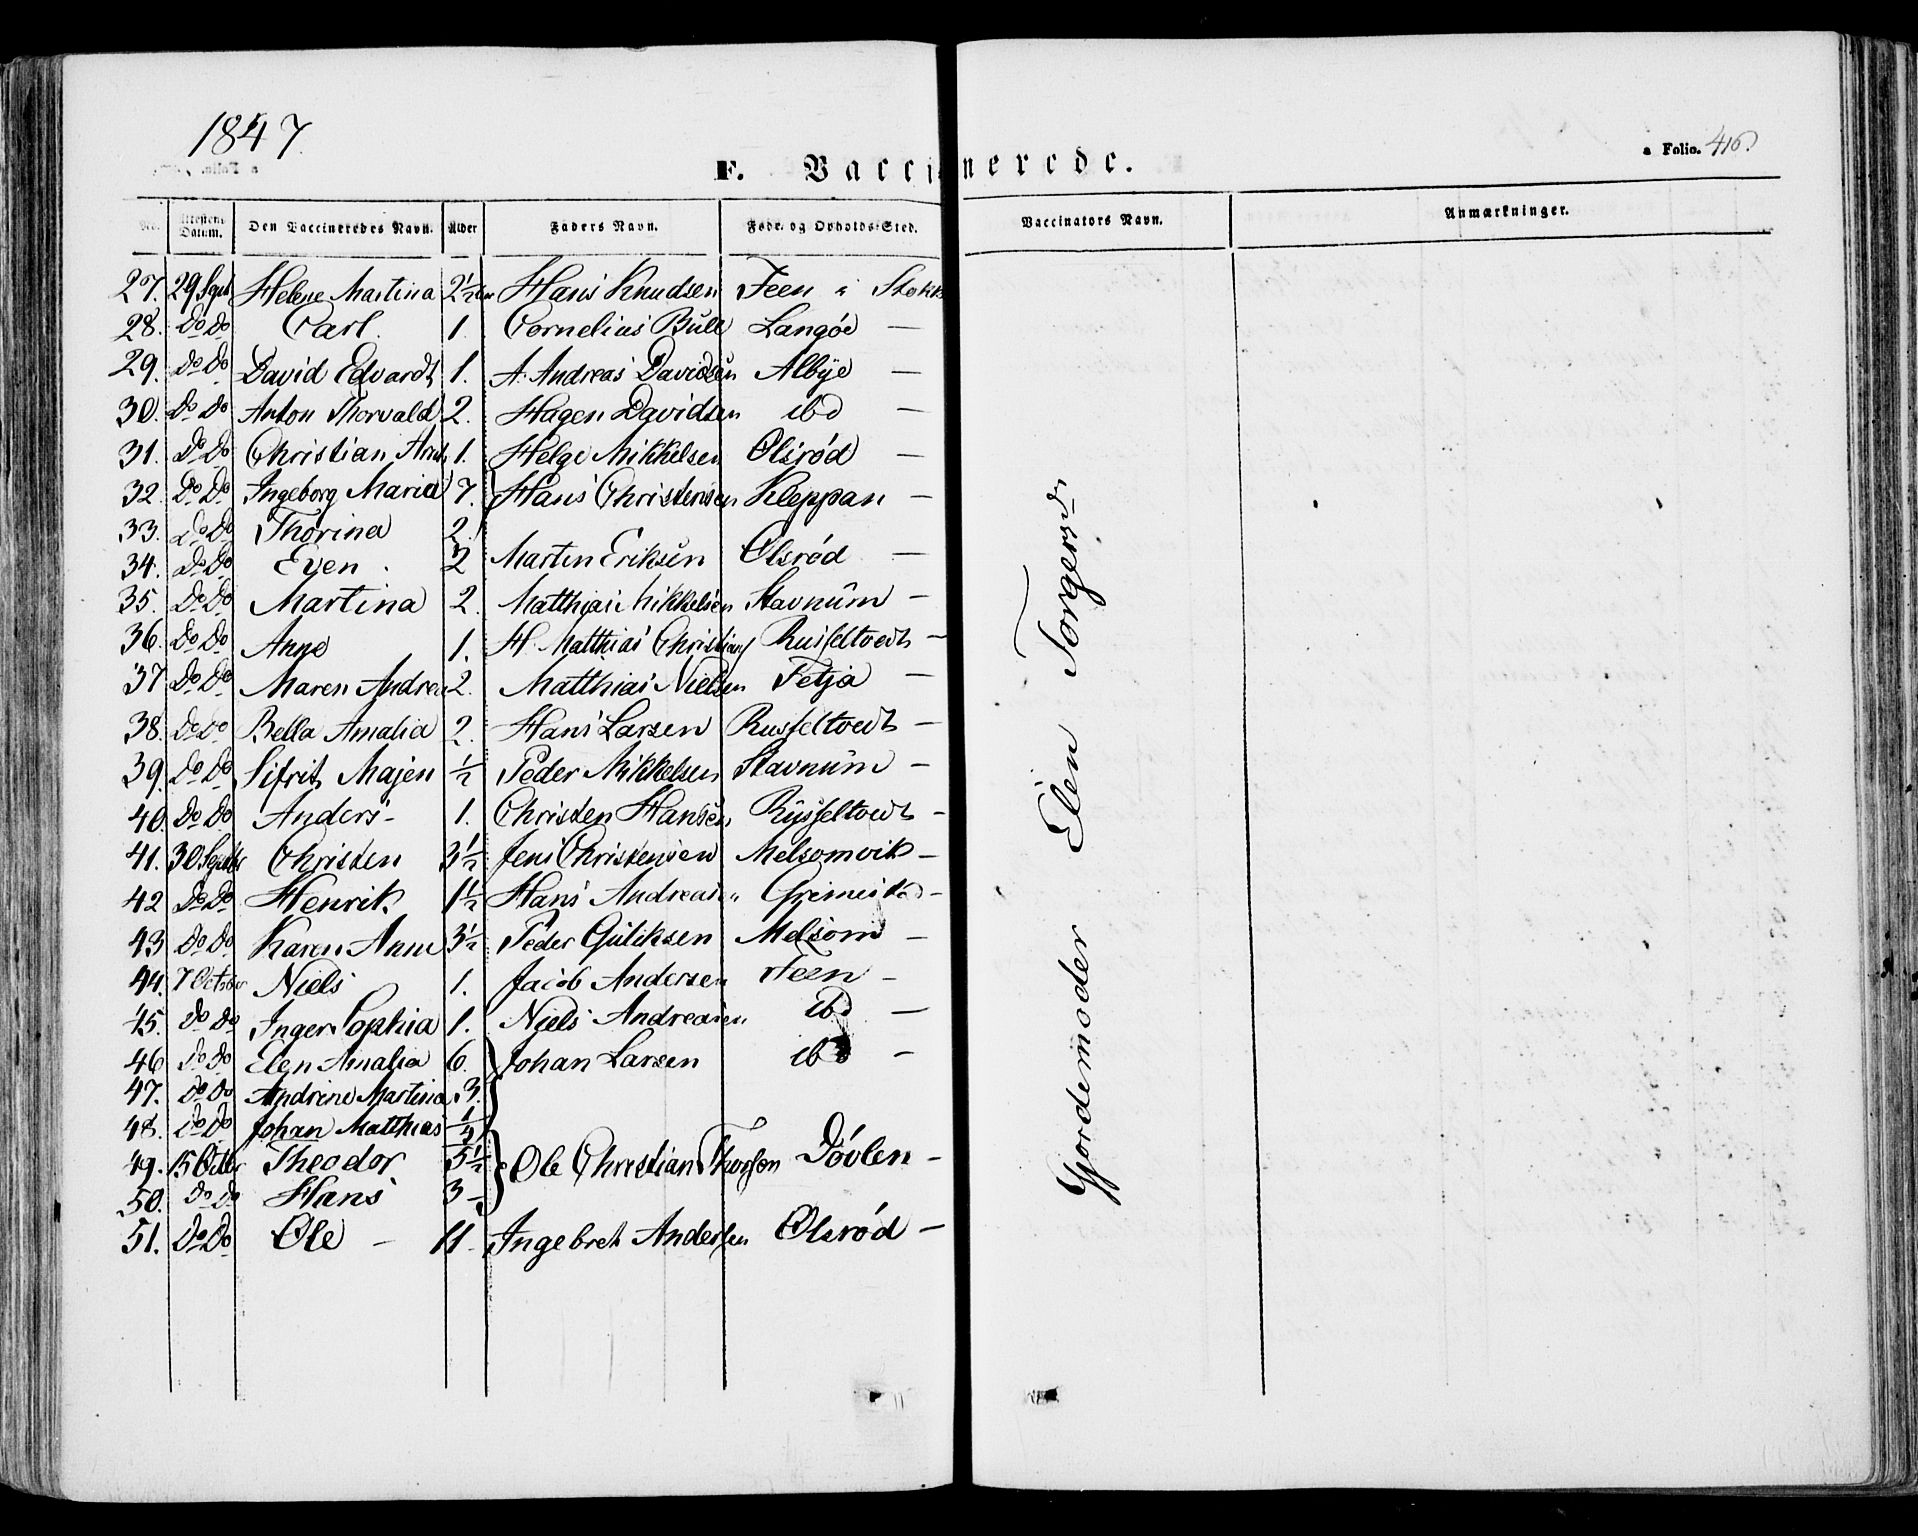 1847.
a Folio. 416
F. Vaccinerede.
No. Attestens Datum. Den Vaccineredes Navn. Alder Faders Navn. Føde- og Opholds-Sted. Vaccinators Navn. Anmærkninger.
27. 29 Sept Helene Martina 2½ Hans Knudsen Feen i Stokk
28. Do Do Carl. 1. Cornelius Bull Langøe —
29. Do Do David Edvardt 1. A. Andreas Davidsen Albye —
30. Do Do Anton Thorvald 2. Hagen Davidsen ibd —
31. Do Do Christian Ant 1. Helge Mikkelsen Olsrød —
32. Do Do Ingeborg Maria 7. } Hans Christensen Kleppan —
33. Do Do Thorina 2.
34. Do Do Even. 2 Marten Eriksen Olsrød —
35. Do Do Martina 2. Matthias Mikkelsen Stavnum —
36. Do Do Anne 1. H. Matthias Christians Russeltvedt —
37 Do Do Maren Andrea 2. Matthias Nielsen Fetja —
38. Do Do Bella Amalia 2. Hans Larsen Russeltvedt —
39. Do Do Sifrit Majen ½ Peder Mikkelsen Stavnum —
40. Do Do Anders - 1. Christen Hansen Russeltvedt —
41. 30 Septbr Christen 3½ Jens Christensen Melsomvik —
42 Do Do Henrik 1½ Hans Andreasen Grimestad —
43 Do Do Karen Anne 3½ Peder Guliksen Melsom —
44. 7 October Niels 1. Jacob Andersen Feen —
45. Do Do Inger Sophia 1. Niels Andreasen ibd —
46 Do Do Elen Amalia 6. } Johan Larsen ibd —
47. Do Do Andrine Martina 3.
48. Do Do Johan Matthias
49. 15 Octbr Theodor 5½ } Ole Christian Thorsen Døvlen —
50. Do Do Hans 3 -
51. Do Do Ole — 11 - Ingebret Andersen Olsrød —
Gjordemoder Elen Torgersd.